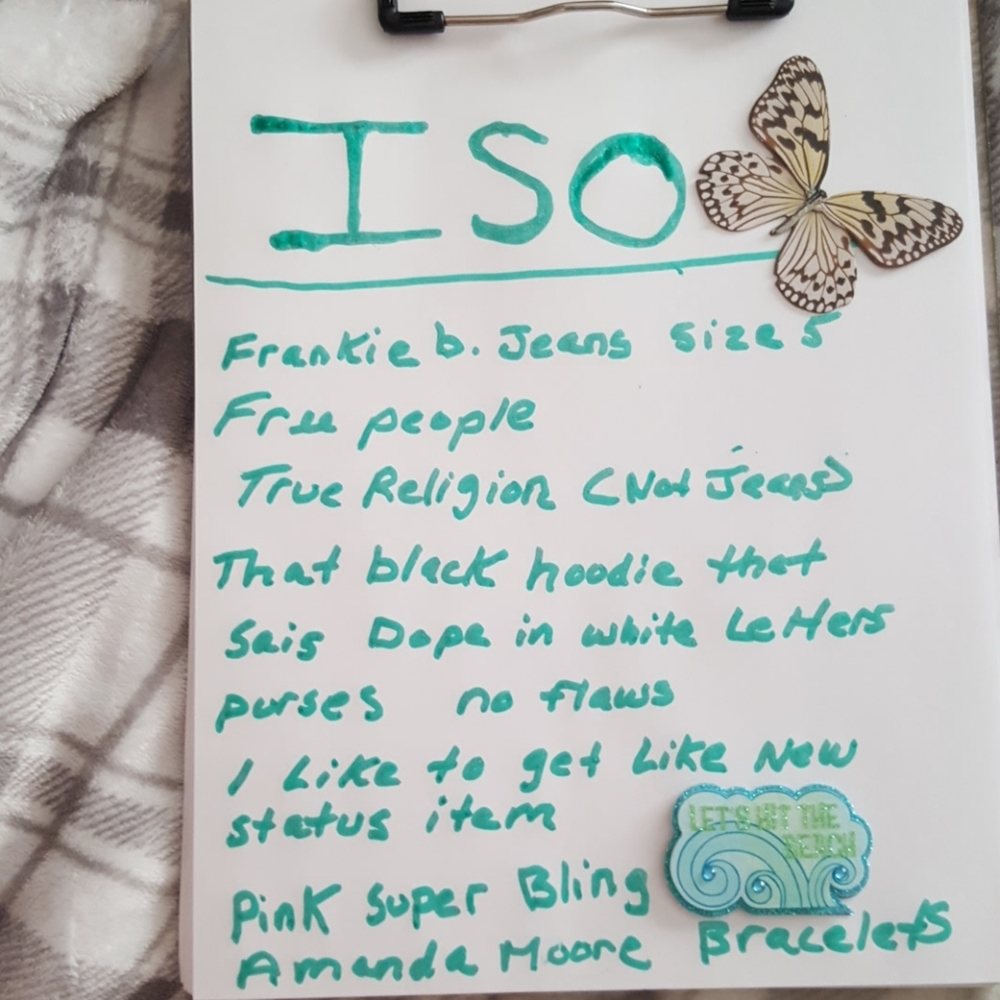 ISO
Frankie b. Jeans size 5
Free people
True Religion (Not Jeans)
That black hoodie that
Sais Dope in white Letters
purses no flaws
I Like to get Like New
status item
LET'S HIT THE
BEACH
Pink Super Bling
Amanda Moore Bracelets